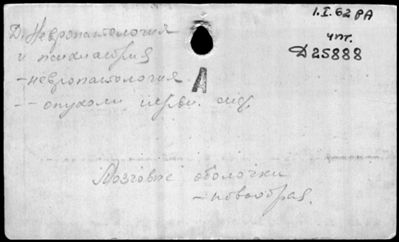 1.I.62 РА
чпт.
Д25888
Д. Невропатология
и психиатрия
А
- невропатология
-- опухоли нервн. сис.
Мозговые оболочки
- новообраз.